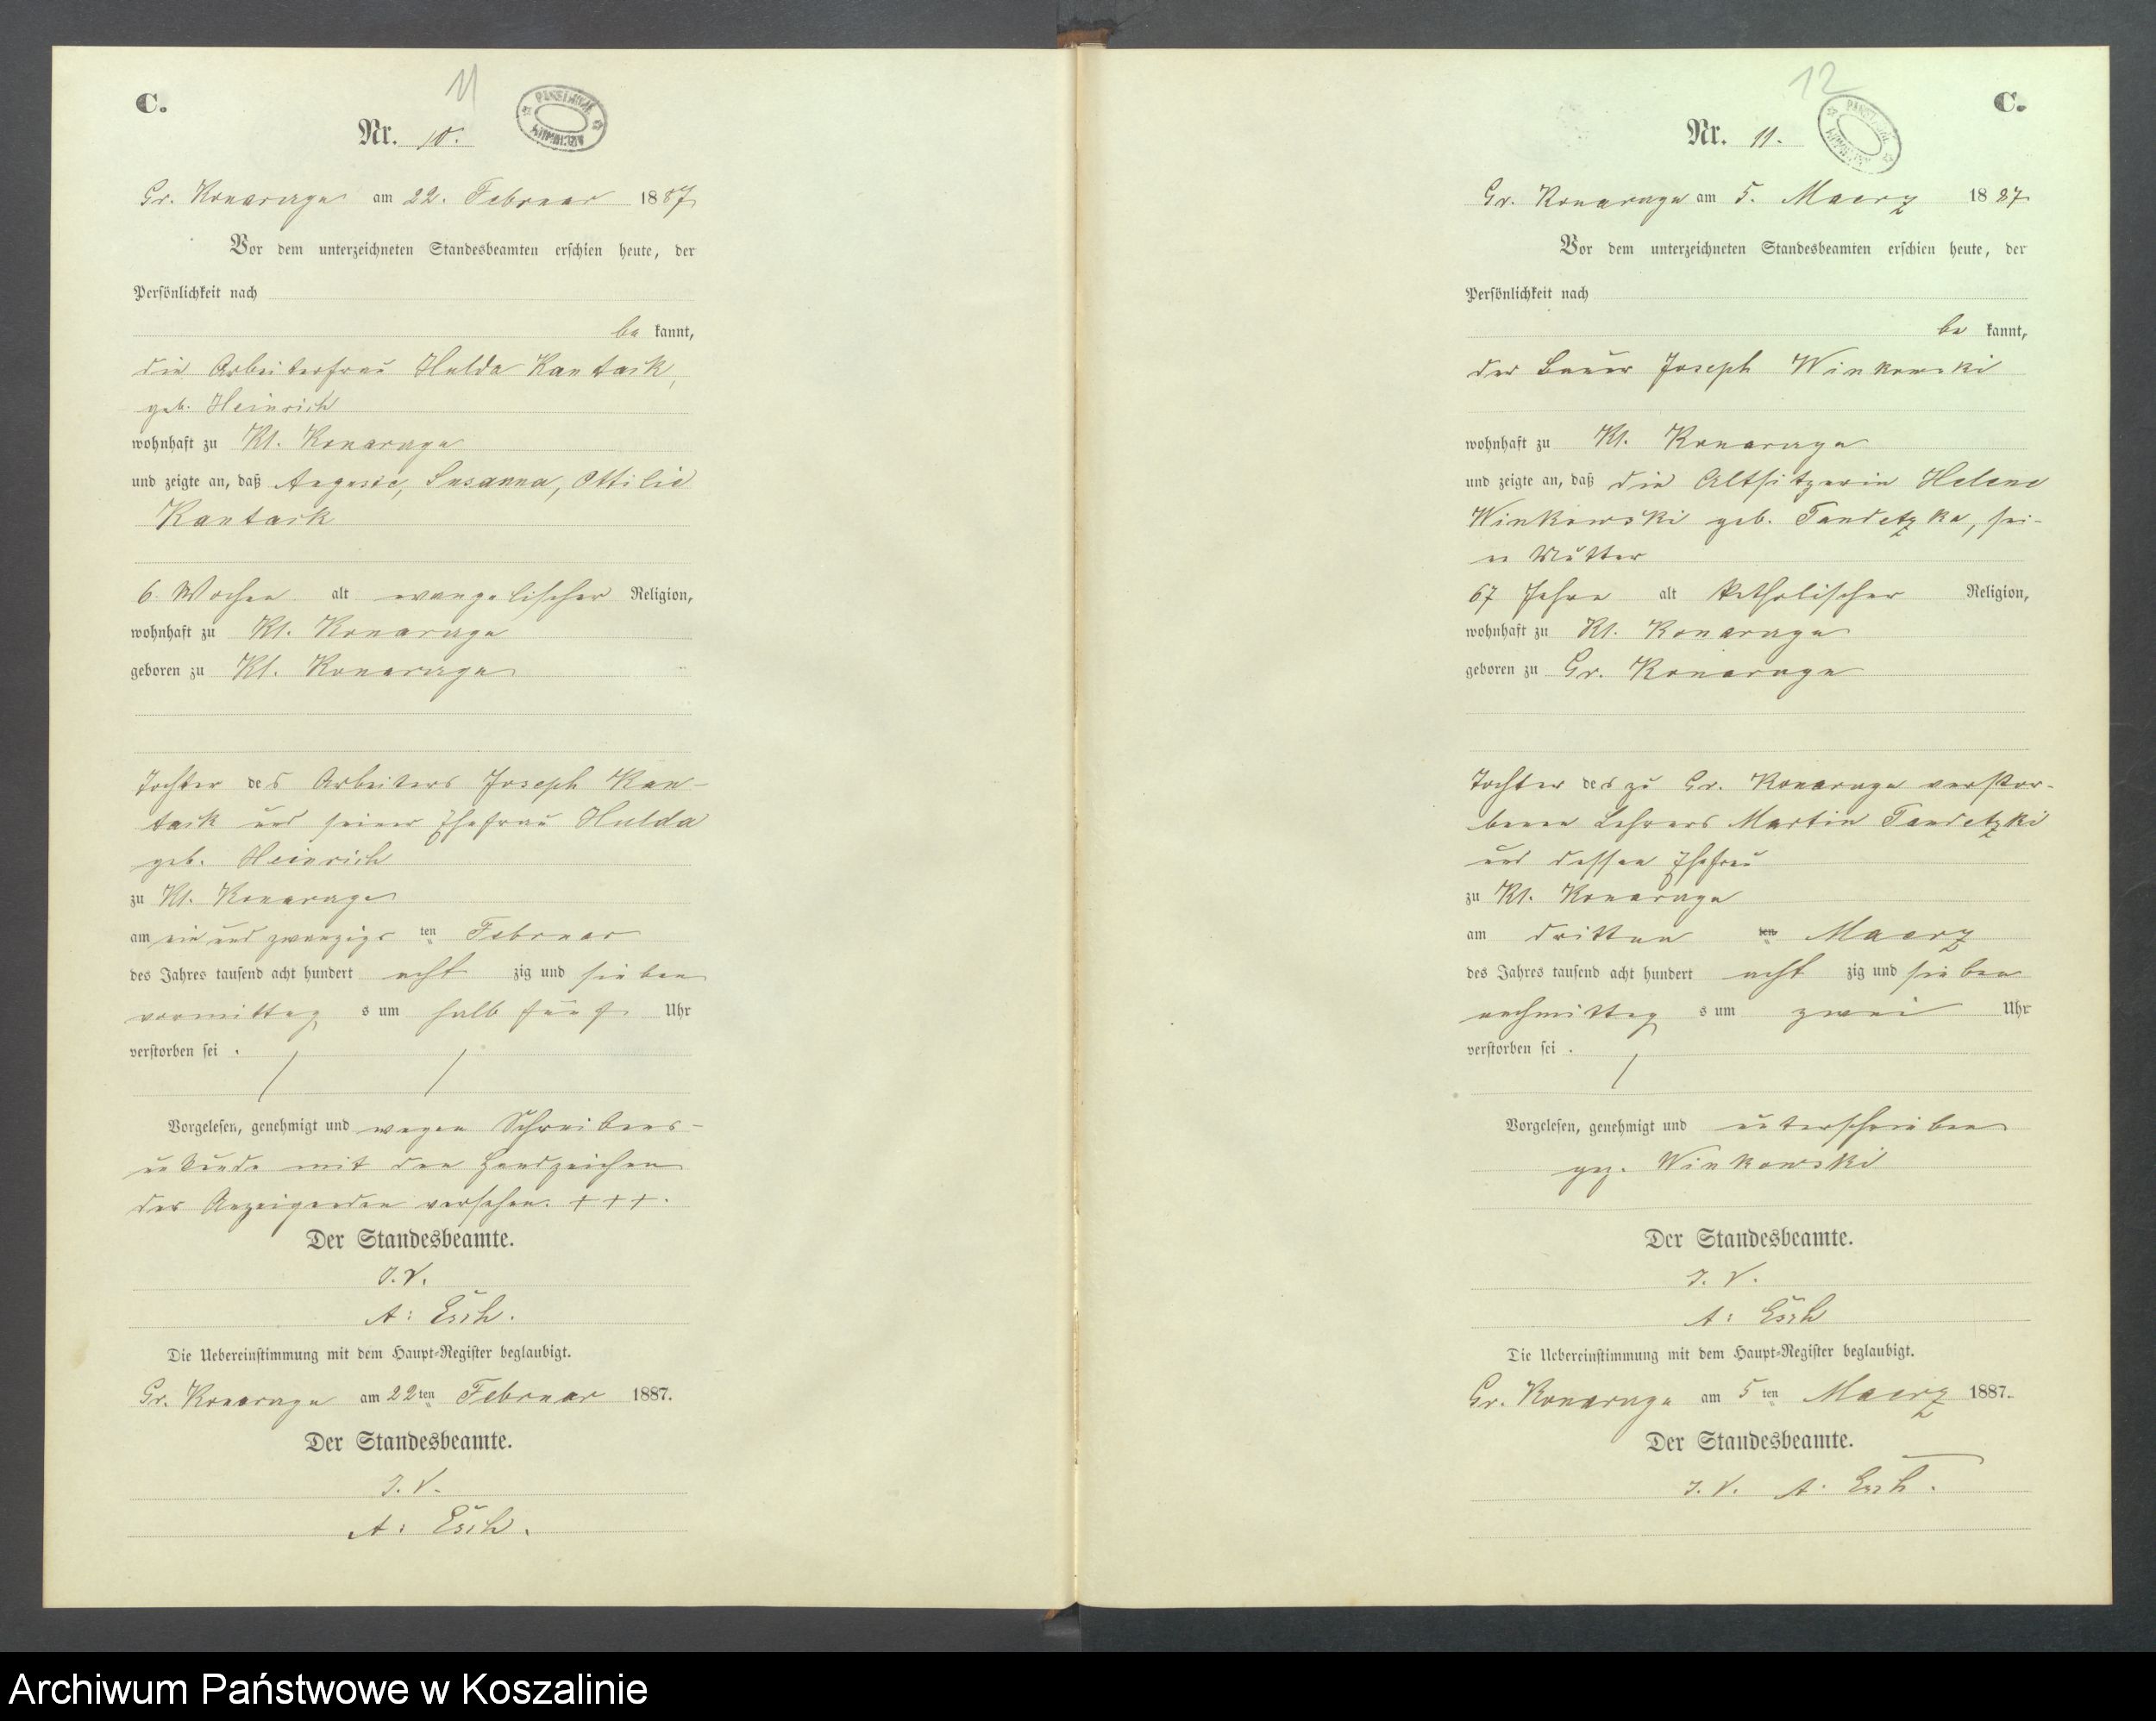 11
C.
Nr. 10.
Gr. Konarzyn am 22. Februar 1887
Vor dem unterzeichneten Standesbeamten erschien heute, der
Persönlichkeit nach
be kannt,
die Arbeiterfrau Hulda Kantack,
geb. Heinrich
wohnhaft zu Kl. Konarzyn
und zeigte an, daß Auguste, Susanna, Ottilie
Kantack
6 Wochen alt evangelischer Religion,
wohnhaft zu Kl. Konarzyn
geboren zu Kl. Konarzyn
Tochter des Arbeiters Joseph Kan-
tack und seiner Ehefrau Hulda
geb. Heinrich
zu Kl. Konarzyn
am ein und zwanzigsten Februar
des Jahres tausend acht hundert acht zig und sieben
vormittag s um halb fünf Uhr
verstorben sei.
Vorgelesen, genehmigt und wegen Schreibens-
unkunde mit den Handzeichen
der Anzeigenden versehen. +++.
Der Standesbeamte.
J. V.
A: Esch.
Die Uebereinstimmung mit dem Haupt-Register beglaubigt.
Gr. Konarzyn am 22ten Februar 1887.
Der Standesbeamte.
J. V.
A: Esch.
12
C.
Nr. 11.
Gr. Konarzyn am 5. Maerz 1887
Vor dem unterzeichneten Standesbeamten erschien heute, der
Persönlichkeit nach
be kannt,
der Bauer Joseph Winkowski
wohnhaft zu Kl. Konarzyn
und zeigte an, daß die Altsitzerin Helene
Winkowski geb. Tandetzka, sei-
ne Mutter
67 Jahre alt katholischer Religion,
wohnhaft zu Kl. Konarzyn
geboren zu Gr. Konarzyn
Tochter des zu Gr. Konarzyn verstor-
benen Lehrers Martin Tandetzki
und dessen Ehefrau
zu Kl. Konarzyn
am dritten ten Maerz
des Jahres tausend acht hundert acht zig und sieben
nachmittag s um zwei Uhr
verstorben sei.
Vorgelesen, genehmigt und unterschrieben
gez. Winkowski
Der Standesbeamte.
J. V.
A: Esch
Die Uebereinstimmung mit dem Haupt-Register beglaubigt.
Gr. Konarzyn am 5 ten Maerz 1887.
Der Standesbeamte.
J. V. A. Esch.
Archiwum Państwowe w Koszalinie